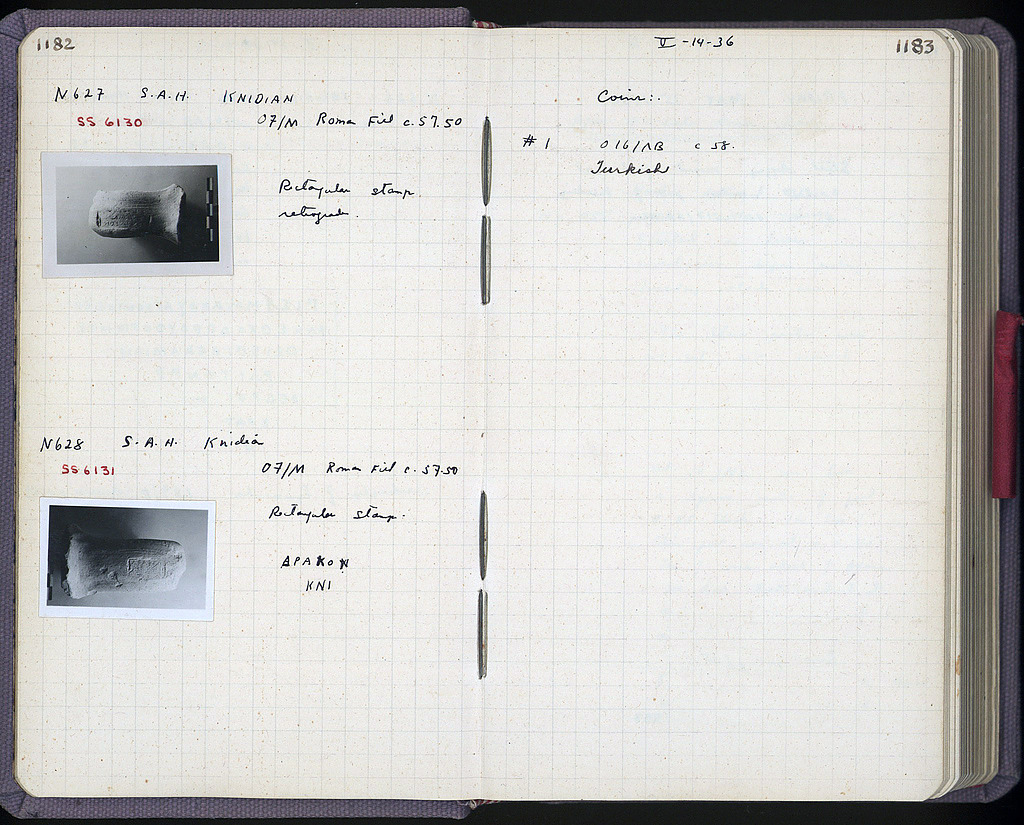 1182
N627 S.A.H. KNIDIAN
SS 6130
O7/M Roman Fill c. 57.50
Rectangular stamp
retrograde.
N628 S.A.H. Knidian
SS 6131
O7/M Roman Fill c. 57.50
Rectangular stamp.
ΔΡΑΚΟΝ
ΚΝΙ
V -14-36
1183
Coins:.
# 1 O 16/ΛΒ c 58.
Turkish